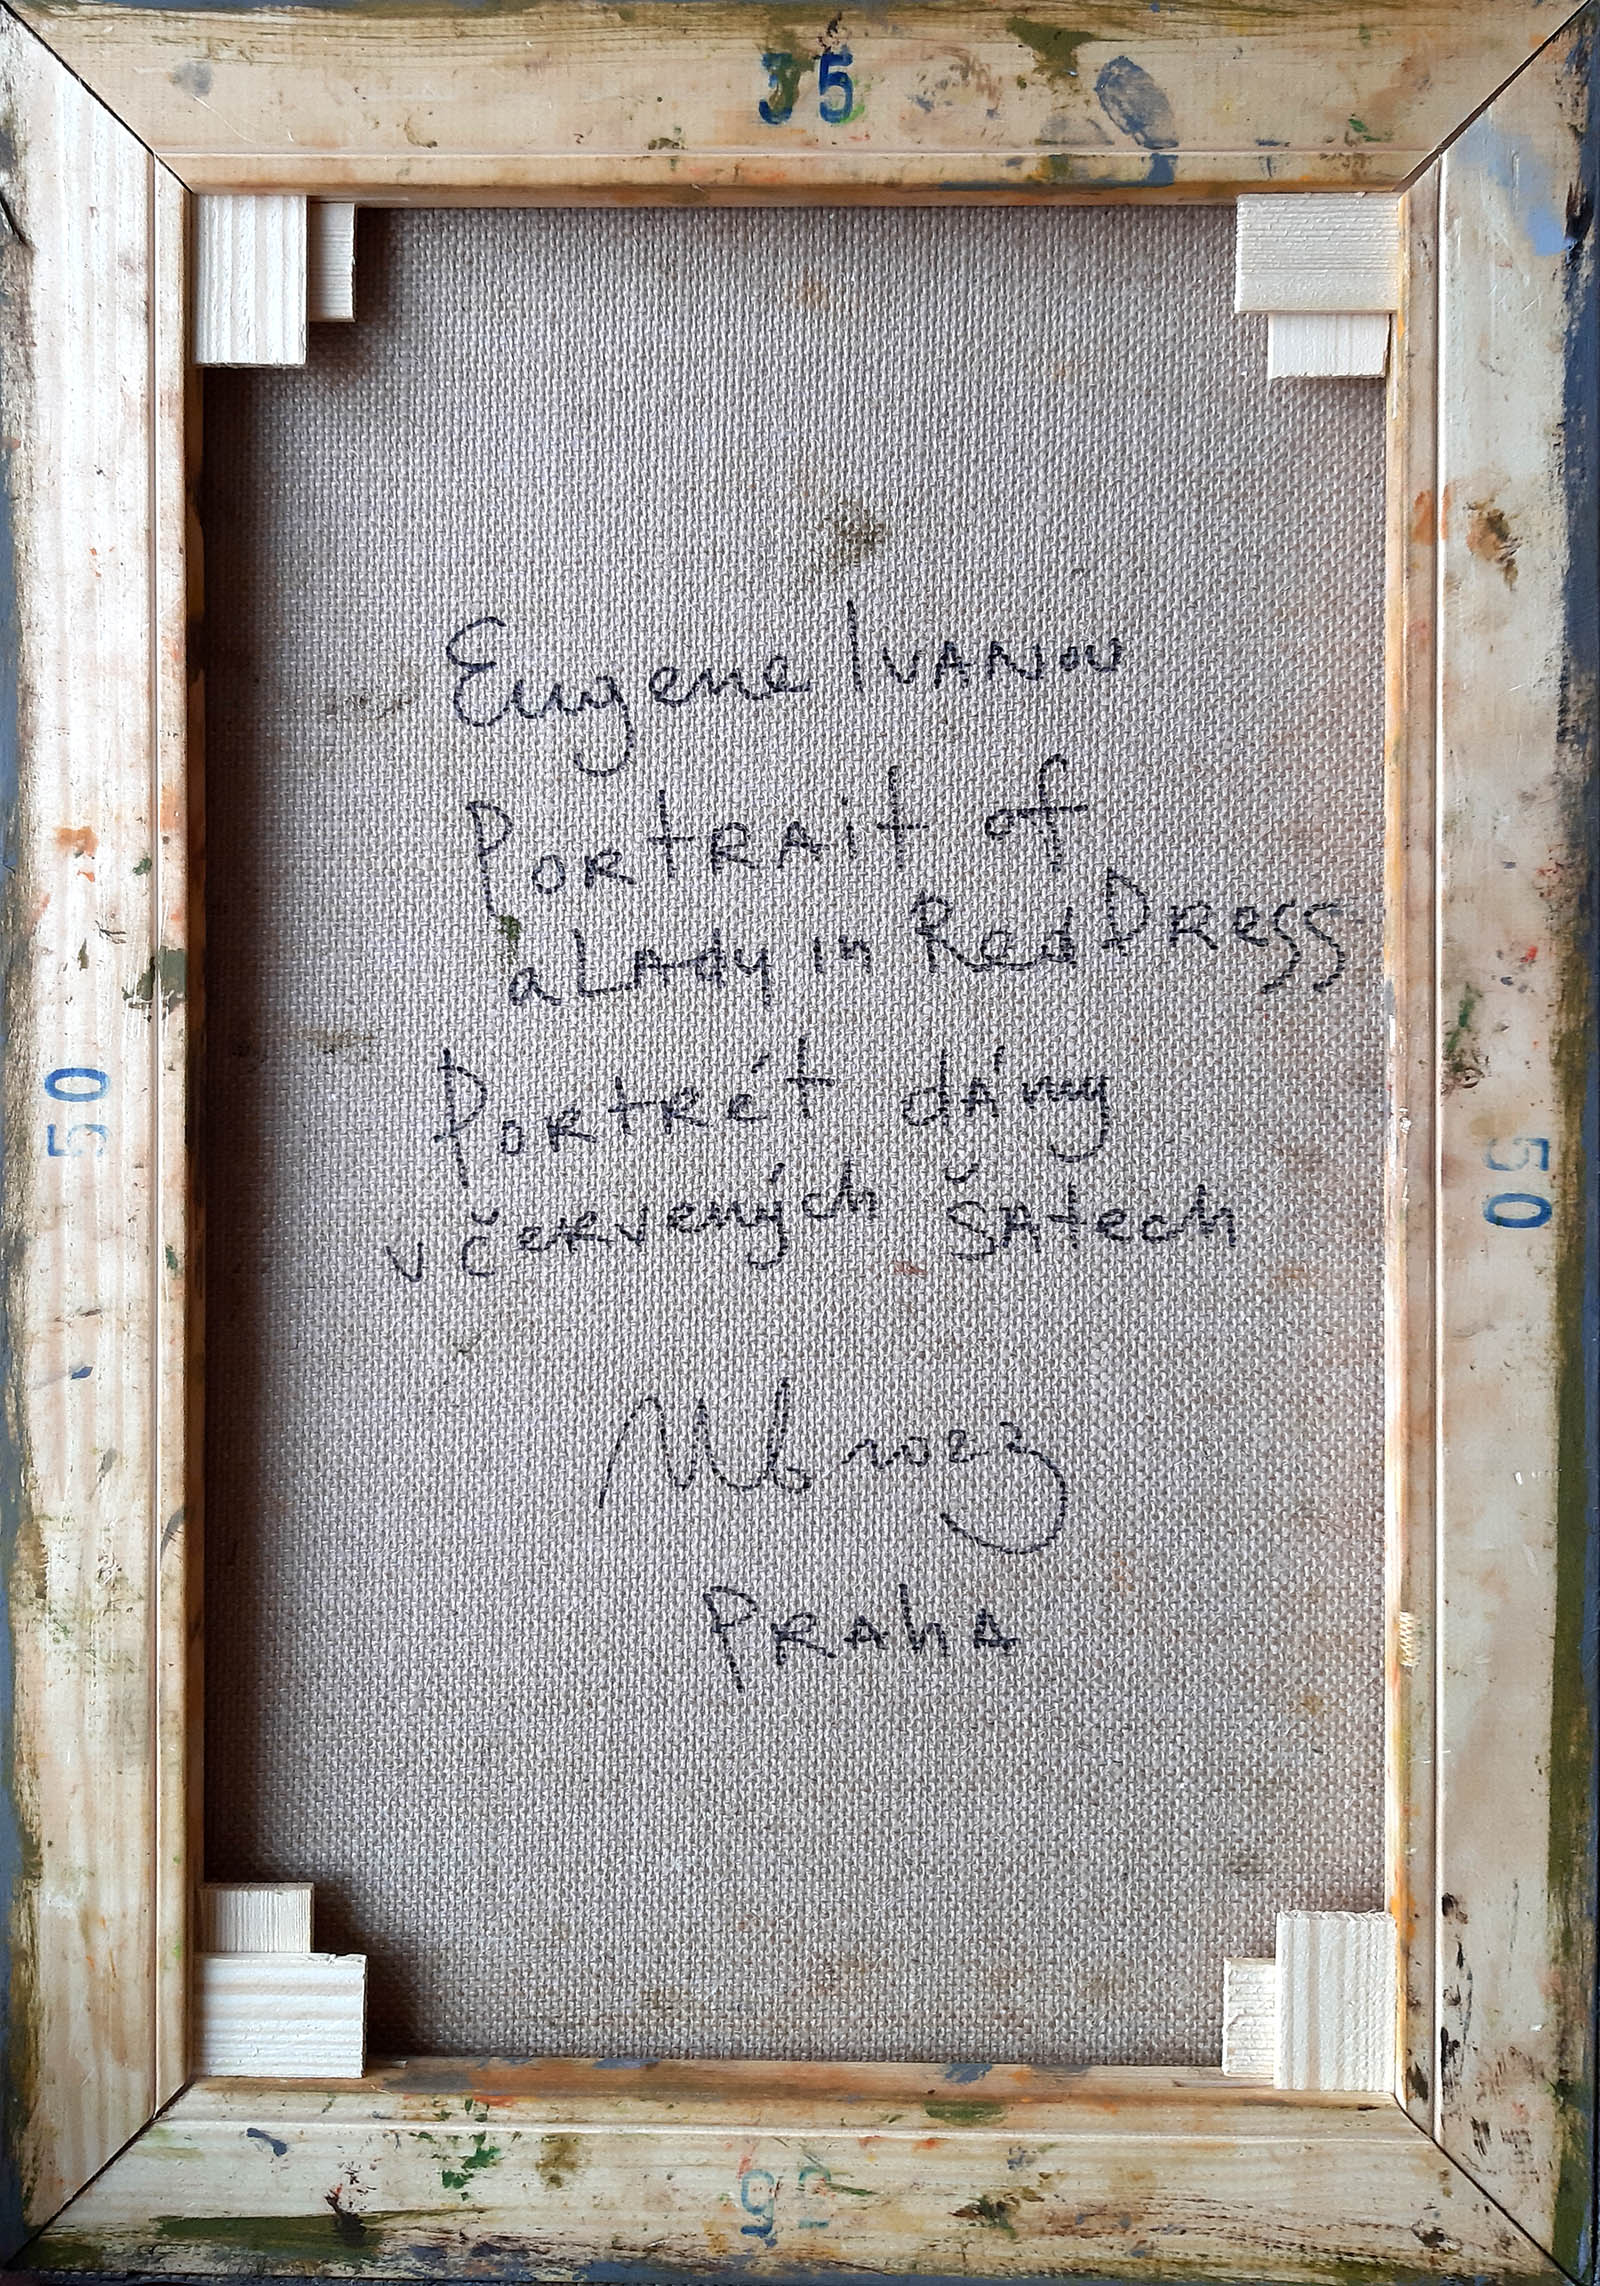 35
Eugene Ivanov
Portrait of
a Lady in Red Dress
Portrét dámy
v červených šatech
2023
Praha
50
50
35